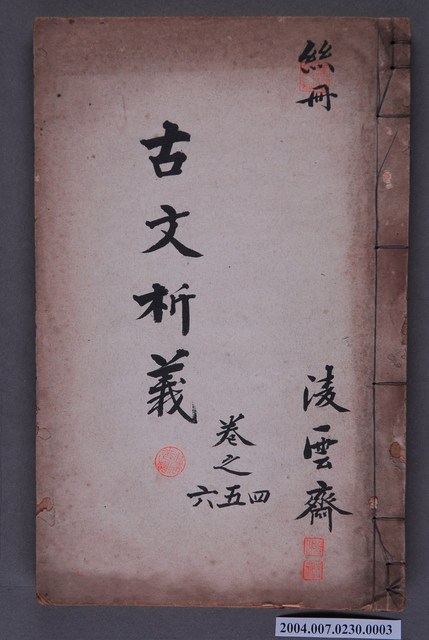 絲冊
凌雲齋
古文析義
卷之
四五六
2004.007.0230.0003